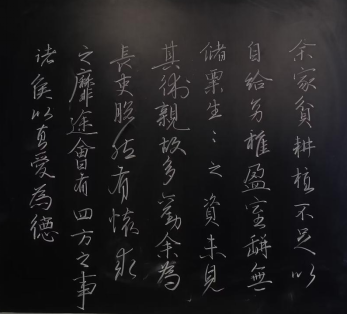 余家貧耕植不足以
自給幼稚盈室缾無
儲粟生〻之資未見
其術親故多勸余為
長吏脫然有懷求
之靡途會有四方之事
諸侯以惠愛為德